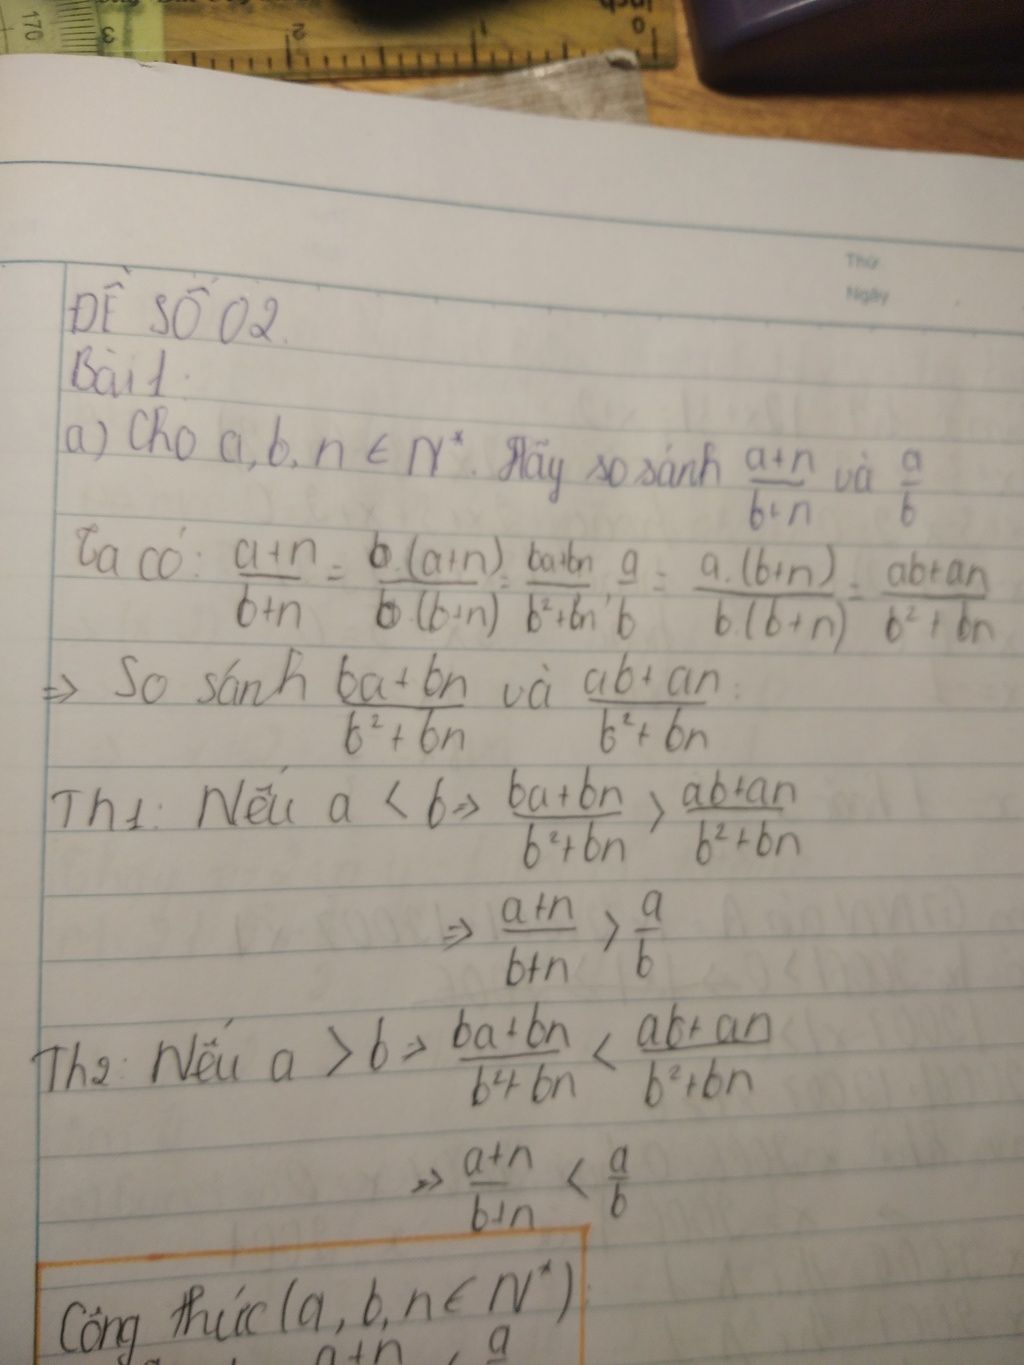 170 3 2 1 0 inch
Thứ
Ngày
ĐỀ SỐ 02.
Bài 1:
a) Cho a, b, n ∈ N*. Hãy so sánh (a+n)/(b+n) và a/b
Ta có: (a+n)/(b+n) = (b.(a+n))/(b.(b+n)) = (ba+bn)/(b²+bn); a/b = (a.(b+n))/(b.(b+n)) = (ab+an)/(b²+bn)
=> So sánh (ba+bn)/(b²+bn) và (ab+an)/(b²+bn):
Th1: Nếu a < b => (ba+bn)/(b²+bn) > (ab+an)/(b²+bn)
=> (a+n)/(b+n) > a/b
Th2: Nếu a > b => (ba+bn)/(b²+bn) < (ab+an)/(b²+bn)
=> (a+n)/(b+n) < a/b
Công thức (a, b, n ∈ N*)
a+n a